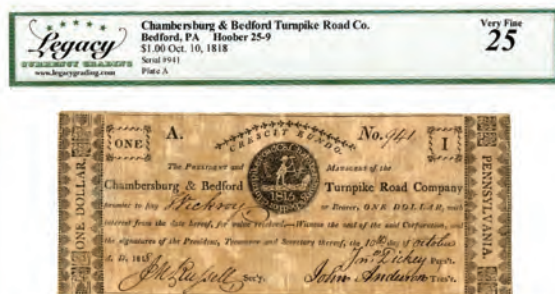 Legacy
CURRENCY GRADING
www.legacygrading.com
Chambersburg & Bedford Turnpike Road Co.
Bedford, PA Hoober 25-9
$1.00 Oct. 10, 1818
Serial #941
Plate A
Very Fine
25
ONE DOLLAR.
ONE
A.
CRESCIT EUNDO.
No. 941
I
PENNSYLVANIA.
The President and Managers of the
Chambersburg & Bedford Turnpike Road Company
1815
promise to pay or Bearer, ONE DOLLAR, with
interest from the date hereof, for value received.—Witness the seal of the said Corporation, and
the signatures of the President, Treasurer and Secretary thereof, the 10th day of October
A. D. 1818
Jno. Dickey Presdt.
JM Russell Sec'y. John Anderson Treas'r.